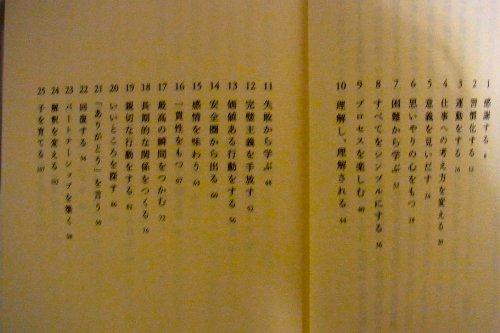 1 感謝する 8
2 習慣化する 12
3 運動をする 16
4 仕事への考え方を変える 20
5 意義を見いだす 24
6 思いやりの心をもつ 28
7 困難から学ぶ 32
8 すべてをシンプルにする 36
9 プロセスを楽しむ 40
10 理解し、理解される 44
11 失敗から学ぶ 48
12 完璧主義を手放す 52
13 価値ある行動をする 56
14 安全圏から出る 60
15 感情を味わう 64
16 一貫性をもつ 67
17 最高の瞬間をつかむ 72
18 長期的な関係をつくる 76
19 親切な行動をする
20 いいところを探す 86
21 「ありがとう」を言う 90
22 回復する 94
23 パートナーシップを築く 98
24 解釈を変える 102
25 子を育てる 107